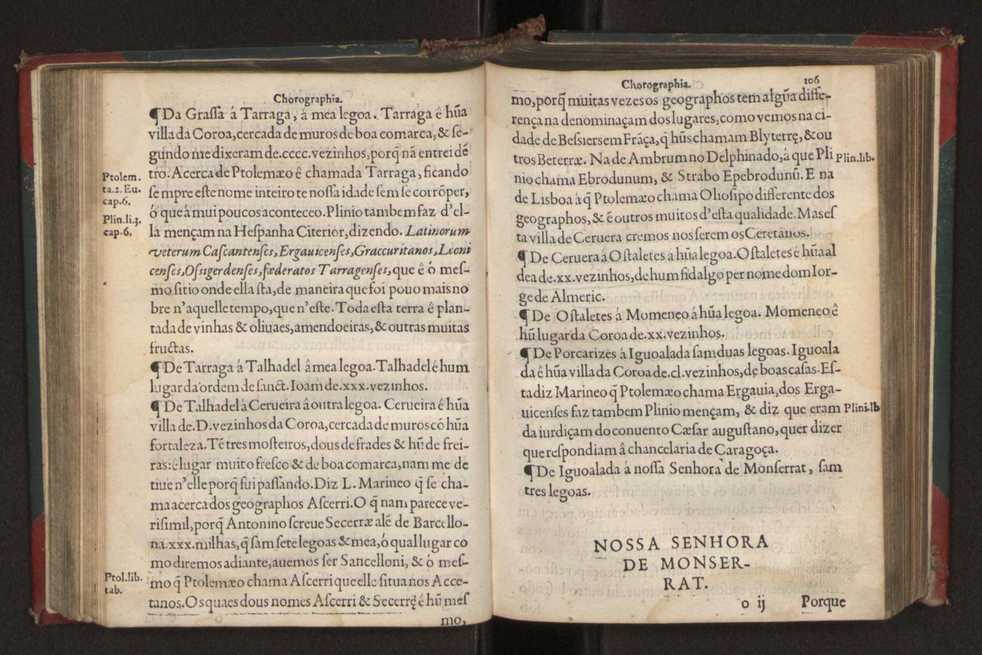 Chorographia.
¶Da Grassa á Tarraga, á mea legoa. Tarraga é hũa
villa da Coroa, cercada de muros de boa comarca, & se-
gundo me dixeram de.cccc.vezinhos, porq̃ nã entrei dẽ
tro. Acerca de Ptolemæo ê chamada Tarraga, ficando
sempre este nome inteiro te nossa idade sem se corrõper,
ó que à mui poucos aconteceo. Plinio tambem faz d'el-
la mençam na Hespanha Citerior, dizendo. Latinorum
veterum Cascantenses, Ergauicenses, Graccuritanos, Leoni
censes, Ossigerdenses, fœderatos Tarragenses, que é ò mes-
mo sitio onde ella sta, de maneira que foi pouo mais no
bre n'aquelle tempo, que n'este. Toda esta terra é plan-
tada de vinhas & oliuaes, amendoeiras, & outras muitas
fructas.
¶De Tarraga á Talhadel â mea legoa. Talhadel é hum
lugar da ordem de sanct. Ioam de.xxx.vezinhos.
¶De Talhadel à Cerueira â outra legoa. Cerueira é hũa
villa de.D.vezinhos da Coroa, cercada de muros cõ hũa
fortaleza. Tẽ tres mosteiros, dous de frades & hũ de frei-
ras: é lugar muito fresco & de boa comarca, nam me de
tiue n'elle porq̃ fui passando. Diz L. Marineo q̃ se cha-
ma acerca dos geographos Ascerri. O q̃ nam parece ve-
risimil, porq̃ Antonino screue Secerræ alẽ de Barcello-
na.xxx.milhas, q̃ sam sete legoas & mea, ó qual lugar co
mo diremos adiante, auemos ser Sancelloni, & ó mes-
mo q̃ Ptolemæo chama Ascerri que elle situa nos Acce-
tanos. Os quaes dous nomes Ascerri & Secerrę é hũ mes
mo,
Ptolem.
ta.2. Eu.
cap.6.
Plin.li.3.
cap.6.
Ptol.lib.
tab.
Chorographia. 106
mo, porq̃ muitas vezes os geographos tem algũa diffe-
rença na denominaçam dos lugares, como vemos na ci-
dade de Besiers em Frãça, q̃ hũs chamam Blyterrę, & ou
tros Beterræ. Na de Ambrum no Delphinado, à que Pli
nio chama Ebrodunum, & Strabo Epebrodunũ. E na
de Lisboa à q̃ Ptolemæo chama Oliosipo differente dos
geographos, & é outros muitos d'esta qualidade. Mas es
ta villa de Ceruera cremos nos serem os Ceretanos.
¶De Ceruera à Ostaletes à hũa legoa. Ostaletes é hũa al
dea de.xx.vezinhos, de hum fidalgo per nome dom Ior-
ge de Almeric.
¶De Ostaletes à Momeneo â hũa legoa. Momeneo é
hũ lugar da Coroa de.xx.vezinhos.
¶De Porcarizes à Iguoalada sam duas legoas. Iguoala
da é hũa villa da Coroa de.cl.vezinhos, dę boas casas. Es-
ta diz Marineo q̃ Ptolemæo chama Ergauia, dos Erga-
uicenses faz tambem Plinio mençam, & diz que eram
da iurdiçam do conuento Cæsar augustano, quer dizer
que respondiam â chancelaria de Caragoça.
¶De Iguoalada à nossa Senhora de Monserrat, sam
tres legoas.
Plin.lib.
Plini.lb
NOSSA SENHORA
DE MONSER-
RAT.
o ij Porque